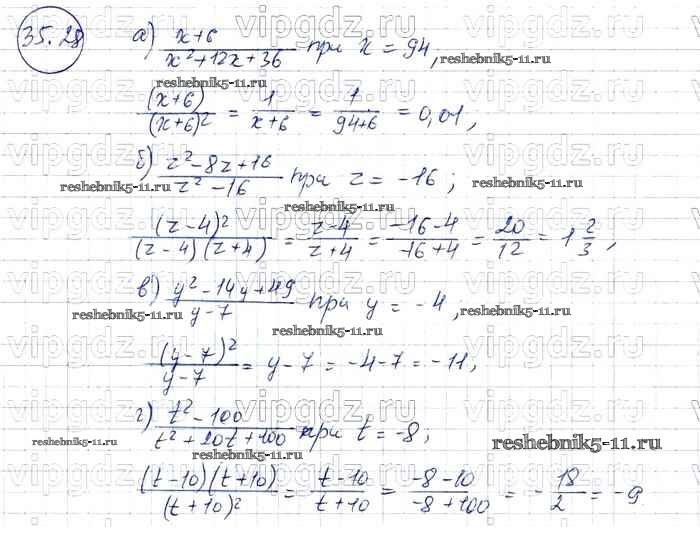 35.28
а) (x+6)/(x²+12x+36) при x = 94;
(x+6)/(x+6)² = 1/(x+6) = 1/(94+6) = 0,01,
б) (z²-8z+16)/(z²-16) при z = -16;
(z-4)²/((z-4)(z+4)) = (z-4)/(z+4) = (-16-4)/(-16+4) = 20/12 = 1 2/3,
в) (y²-14y+49)/(y-7) при y = -4;
(y-7)²/(y-7) = y-7 = -4-7 = -11,
г) (t²-100)/(t²+20t+100) при t = -8;
((t-10)(t+10))/(t+10)² = (t-10)/(t+10) = (-8-10)/(-8+100) = -18/2 = -9
vipgdz.ru
reshebnik5-11.ru